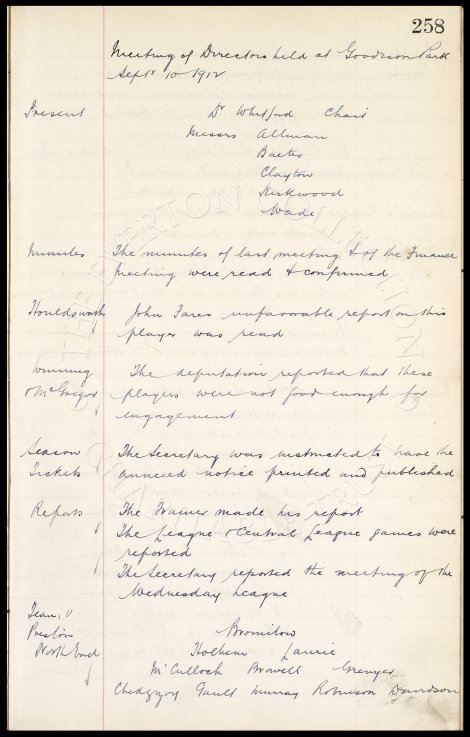 258
Meeting of Directors held at Goodison Park
Septr 10 1912
Present Dr Whitford Chair
Messrs Allman
Baxter
Clayton
Kirkwood
Wade
Minutes The minutes of last meeting & of the Finance
Meeting were read & confirmed
Houldsworth John Fares unfavorable report on this
player was read
Winning The deputation reported that these
& McGregor players were not good enough for
engagement
Season The Secretary was instructed to have the
Tickets annexed notice printed and published
Reports The Trainer made his report
The League & Central League games were
reported
The Secretary reported the meeting of the
Wednesday League
Team, v
Preston Bromilow
North End Holbem Laurie
McCulloch Browell Grenyer
Chedgzoy Gault Murray Robinson Davidson
THE EVERTON COLLECTION